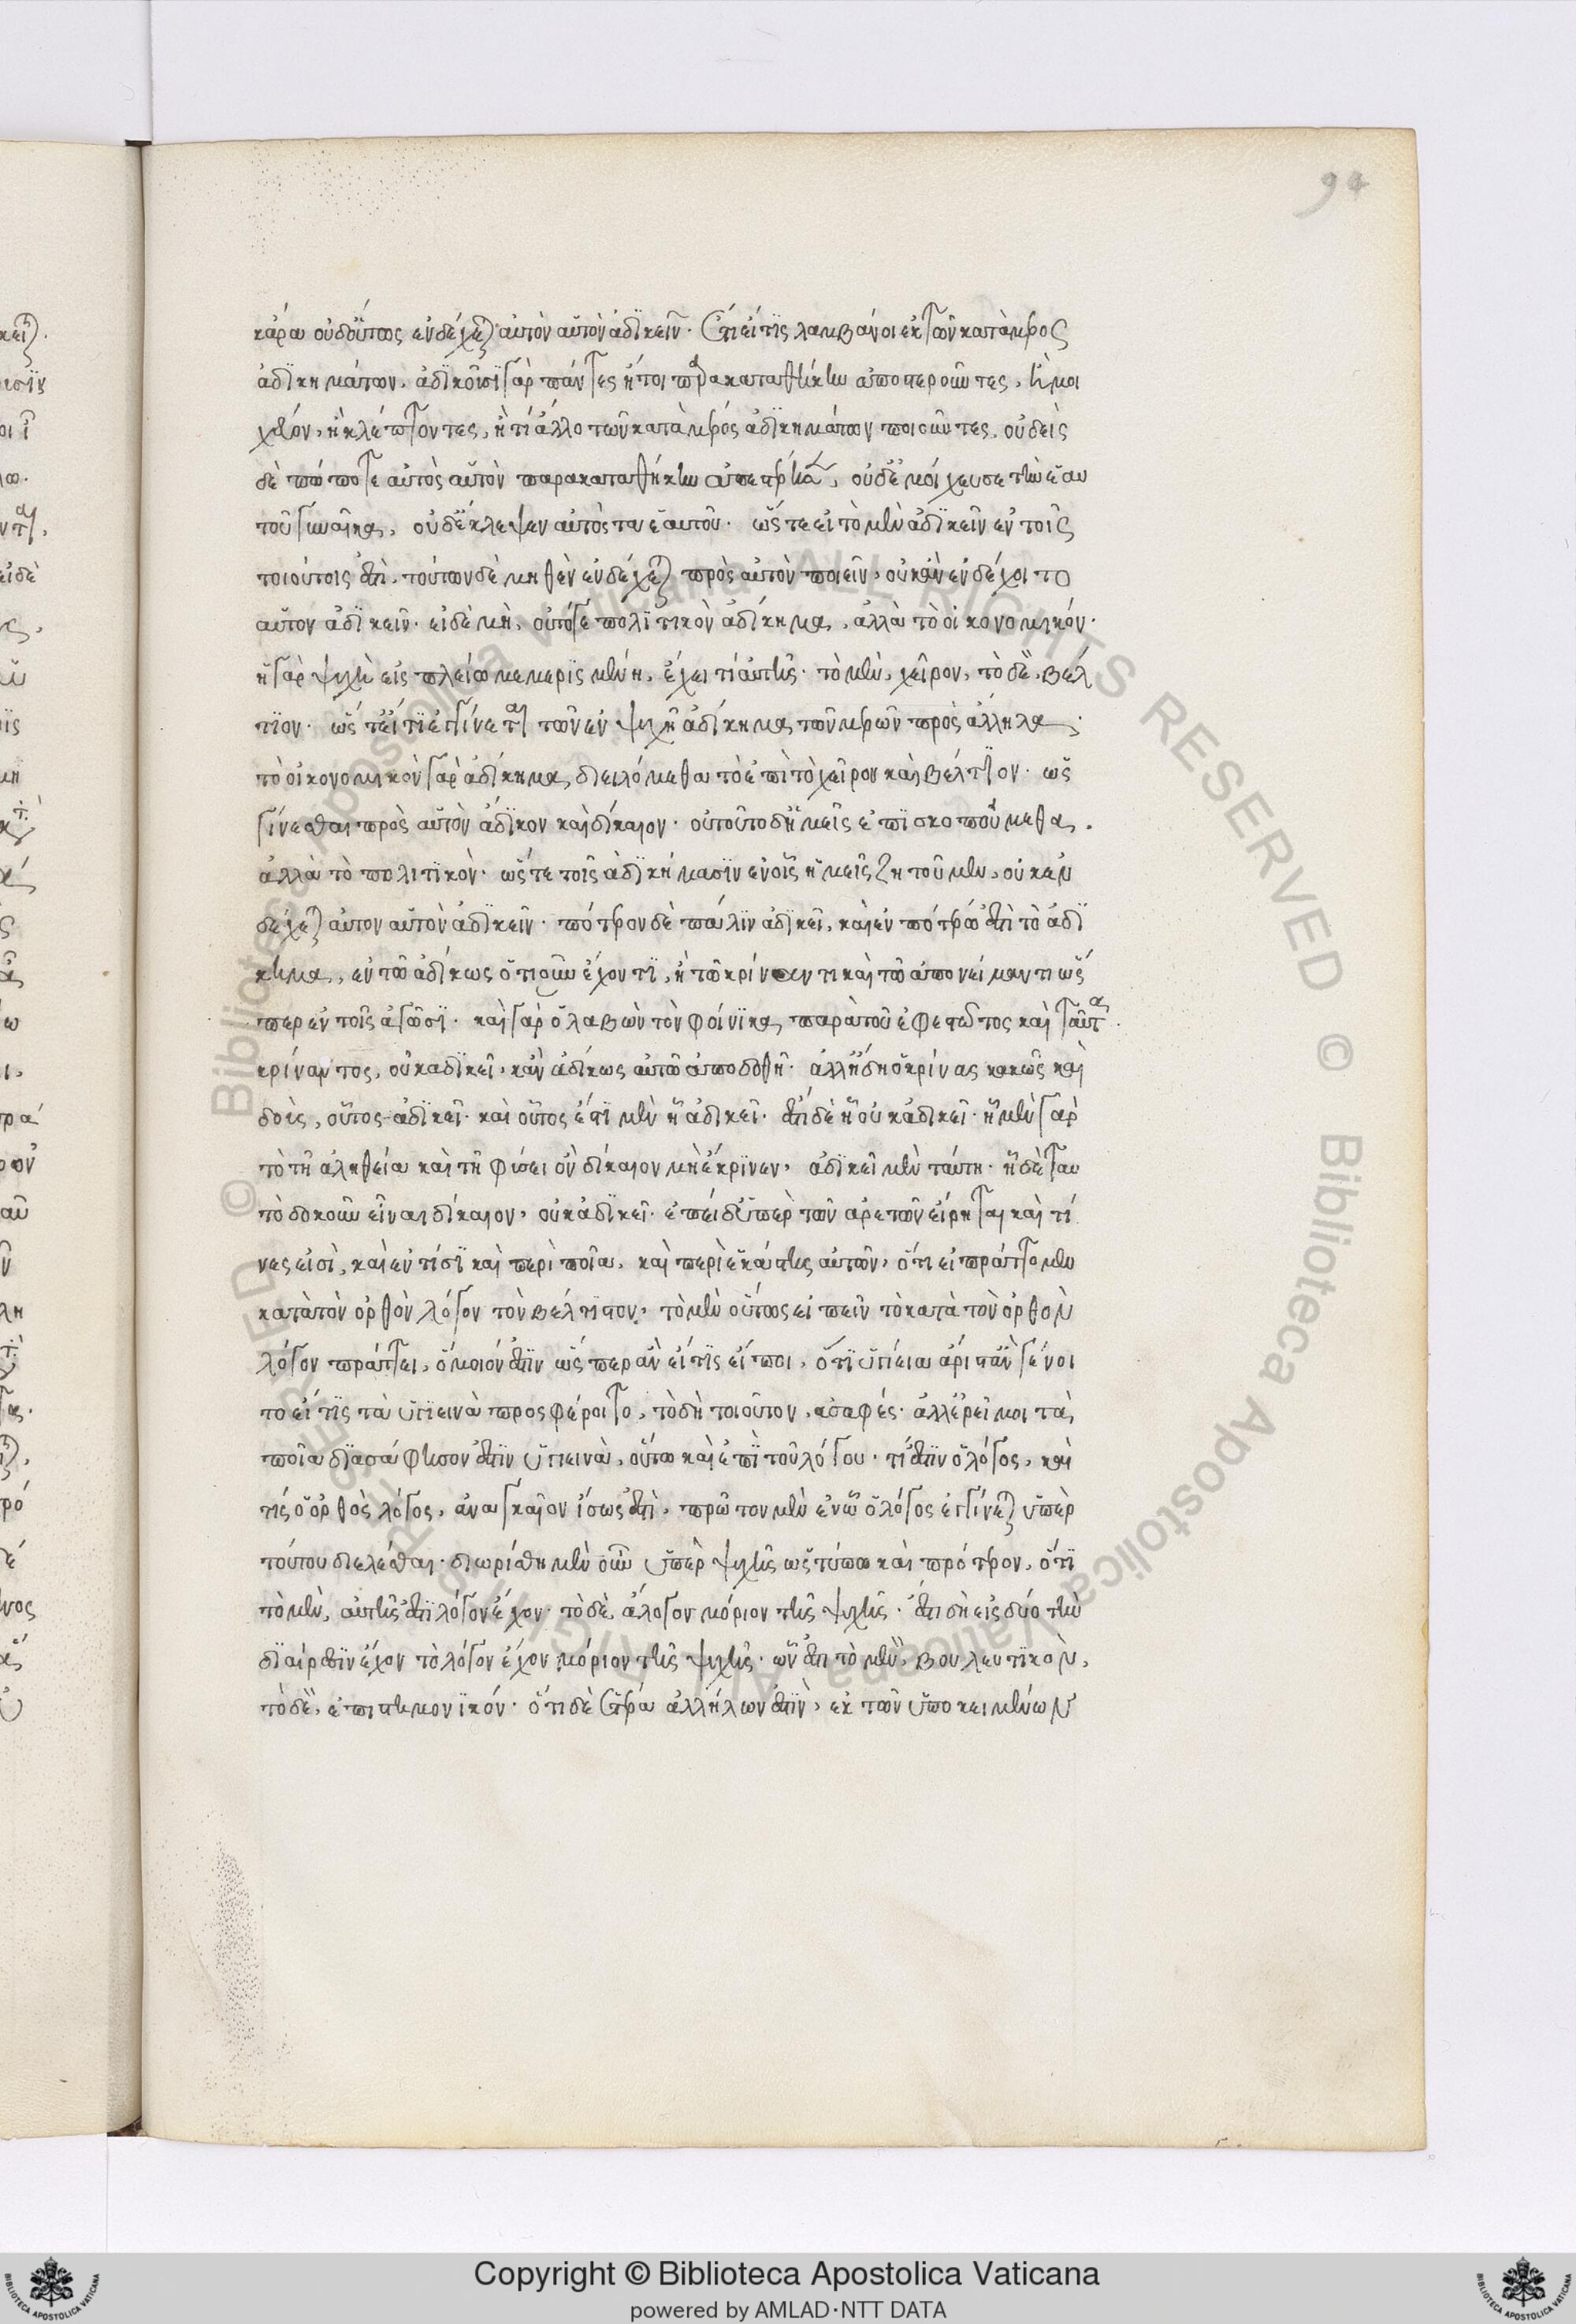 94
κἄρα οὐδ' οὕτως ἐνδέχεται αὐτὸν αὑτὸν ἀδικεῖν. ἔτι εἴ τις λαμβάνοι ἐκ τῶν κατὰ μέρος
ἀδικημάτων. ἀδικοῦσι γὰρ πάντες ἤτοι παρακαταθήκην ἀποστεροῦντες, ἢ μοι
χεύον, ἢ κλέπτοντες, ἤ τι ἄλλο τῶν κατὰ μέρος ἀδικημάτων ποιοῦντες. οὐδεὶς
δὲ πώποτε αὐτὸς αὑτὸν παρακαταθήκην ἀπεστέρησεν, οὐδ' ἐμοίχευσε τὴν ἑαυ
τοῦ γυναῖκα, οὐδ' ἔκλεψεν αὐτὸς τὰ ἑαυτοῦ. ὥστε εἰ τὸ μὲν ἀδικεῖν ἐν τοῖς
τοιούτοις ἐστὶ. τούτων δὲ μηθὲν ἐνδέχεται πρὸς αὑτὸν ποιεῖν, οὐκ ἂν ἐνδέχοιτο
αὑτὸν ἀδικεῖν. εἰ δὲ μὴ, οὔτοι γε πολιτικὸν ἀδίκημα, ἀλλὰ τὸ οἰκονομικόν.
ἡ γὰρ ψυχὴ εἰς πλείω μεμερισμένη, ἔχει τι αὐτῆς. τὸ μὲν, χεῖρον, τὸ δὲ, βέλ
τιον. ὥστ' εἴ τι ἐγγίνεται τῶν ἐν ψυχῇ ἀδίκημα τῶν μερῶν πρὸς ἄλληλα.
τὸ οἰκονομικὸν γὰρ ἀδίκημα διειλόμεθα τὸ ἐπὶ τὸ χεῖρον καὶ βέλτιον. ὡς
γίνεσθαι πρὸς αὑτὸν ἄδικον καὶ δίκαιον. οὐ τοῦτο δ' ἡμεῖς ἐπισκοπούμεθα.
ἀλλὰ τὸ πολιτικὸν. ὥστε τοῖς ἀδικήμασιν ἐν οἷς ἡμεῖς ζητοῦμεν, οὐκ ἐν
δέχεται αὐτὸν αὑτὸν ἀδικεῖν. πότερον δὲ πάλιν ἀδικεῖ, καὶ ἐν ποτέρῳ ἐστὶ τὸ ἀδί
κημα, ἐν τῷ ἀδίκως ὁτιοῦν ἔχοντι, ἢ τῷ κρίναντι καὶ τῷ ἀπονείμαντι ὥσ
περ ἐν τοῖς ἀγῶσι. καὶ γὰρ ὁ λαβὼν τὸν φοίνικα παρὰ τοῦ ἐφεστῶτος καὶ ταῦτα
κρίναντος, οὐκ ἀδικεῖ, κἂν ἀδίκως αὐτῷ ἀποδοθῇ. ἀλλ' ἤδη ὁ κρίνας κακῶς καὶ
δοὺς, οὗτος ἀδικεῖ. καὶ οὗτος ἔστι μὲν ᾗ ἀδικεῖ. ἔστι δὲ ᾗ οὐκ ἀδικεῖ. ᾗ μὲν γὰρ
τὸ τῇ ἀληθείᾳ καὶ τῇ φύσει ὂν δίκαιον μὴ ἔκρινεν, ἀδικεῖ μὲν ταύτῃ. ᾗ δὲ ταυ
τὸ δοκοῦν εἶναι δίκαιον, οὐκ ἀδικεῖ. ἐπεὶ δ' ὑπὲρ τῶν ἀρετῶν εἴρηται καὶ τί
νες εἰσὶ, καὶ ἐν τίσι καὶ περὶ ποῖα, καὶ περὶ ἑκάστης αὐτῶν, ὅτι εἰ πράττομεν
κατὰ τὸν ὀρθὸν λόγον τὸν βέλτιστον, τὸ μὲν οὕτως εἰπεῖν τὸ κατὰ τὸν ὀρθὸν
λόγον πράττει, ὅμοιόν ἐστιν ὥσπερ ἂν εἴ τις εἴποι, ὅτι ὑγίεια ἄριστ' ἂν γένοι
το εἴ τις τὰ ὑγιεινὰ προσφέροιτο, τὸ δὴ τοιοῦτον, ἀσαφές. ἀλλ' ἐρεῖ μοι τὰ
ποῖα διασάφησον ἐστὶν ὑγιεινὰ, οὕτω καὶ ἐπὶ τοῦ λόγου. τί ἐστιν ὁ λόγος, καὶ
τίς ὁ ὀρθὸς λόγος, ἀναγκαῖον ἴσως ἐστὶ, πρῶτον μὲν ἐν ᾧ ὁ λόγος ἐγγίνεται ὑπὲρ
τούτου διελέσθαι. διωρίσθη μὲν οὖν ὑπὲρ ψυχῆς ὡς τύπῳ καὶ πρότερον, ὅτι
τὸ μὲν, αὐτῆς ἐστι λόγον ἔχον. τὸ δὲ, ἄλογον μόριον τῆς ψυχῆς. ἔστι δὴ εἰς δύο τὴν
διαίρεσιν ἔχον τὸ λόγον ἔχον μόριον τῆς ψυχῆς. ὧν ἐστι τὸ μὲν, βουλευτικὸν,
τὸ δὲ, ἐπιστημονικόν. ὅτι δὲ ἕτερα ἀλλήλων ἐστὶν, ἐκ τῶν ὑποκειμένων
© Biblioteca Apostolica Vaticana ALL RIGHTS RESERVED
Copyright © Biblioteca Apostolica Vaticana
powered by AMLAD·NTT DATA